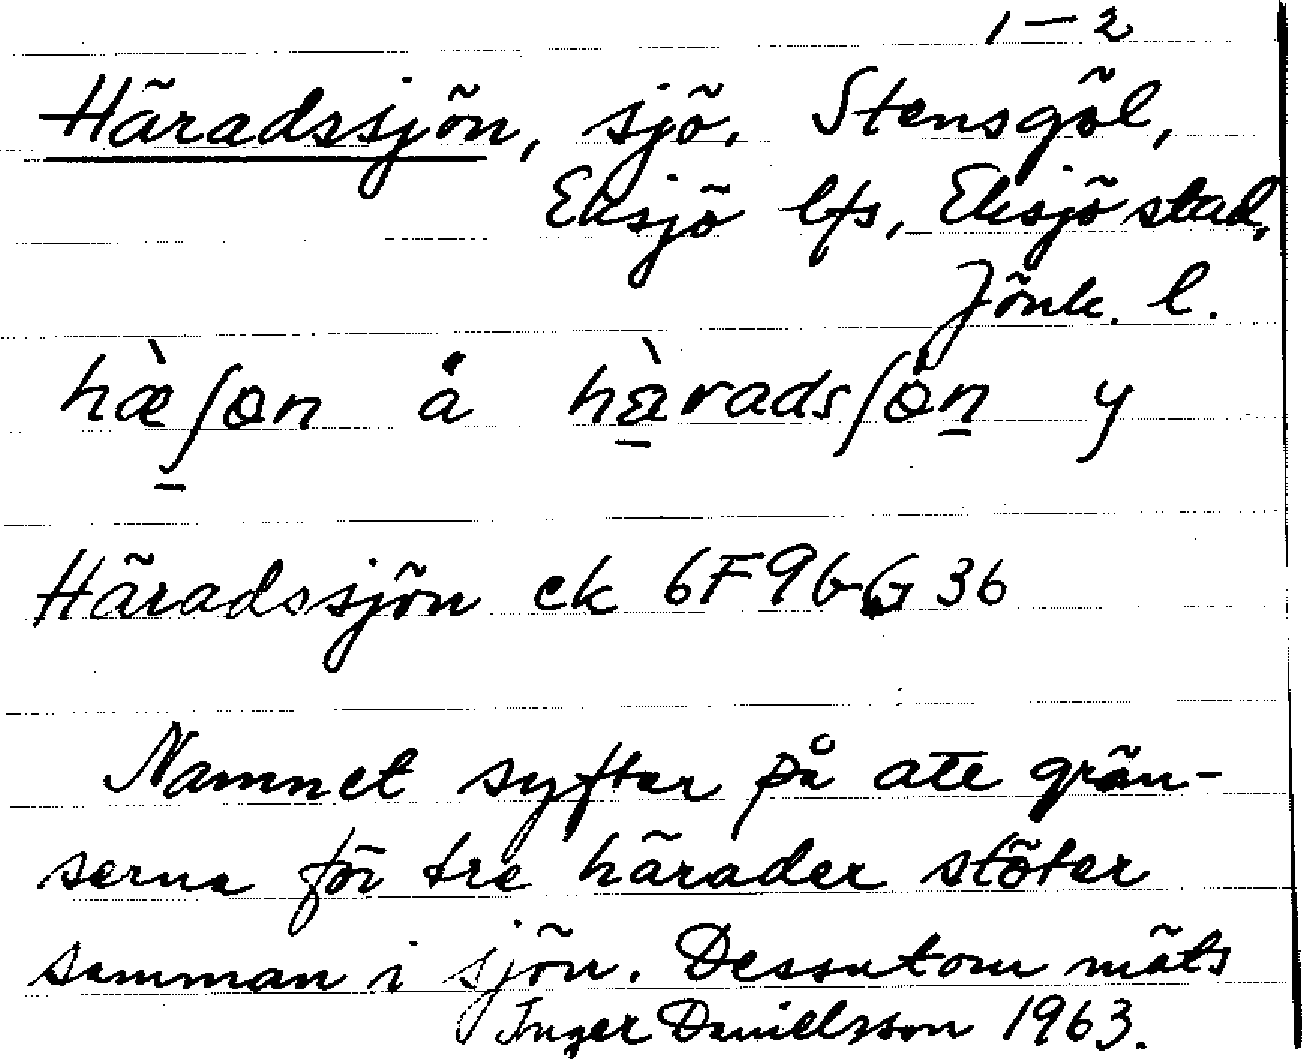 1–2
Häradssjön, sjö. Stensgöl,
Eksjö lfs, Eksjö stad,
Jönk. l.
hæ̀ʃɵn å hæ̀radsʃön y
Häradssjön ek 6F9b-G 36
Namnet syftar på att grän-
serna för tre härader stöter
samman i sjön. Dessutom mäts
Inger Danielsson 1963.